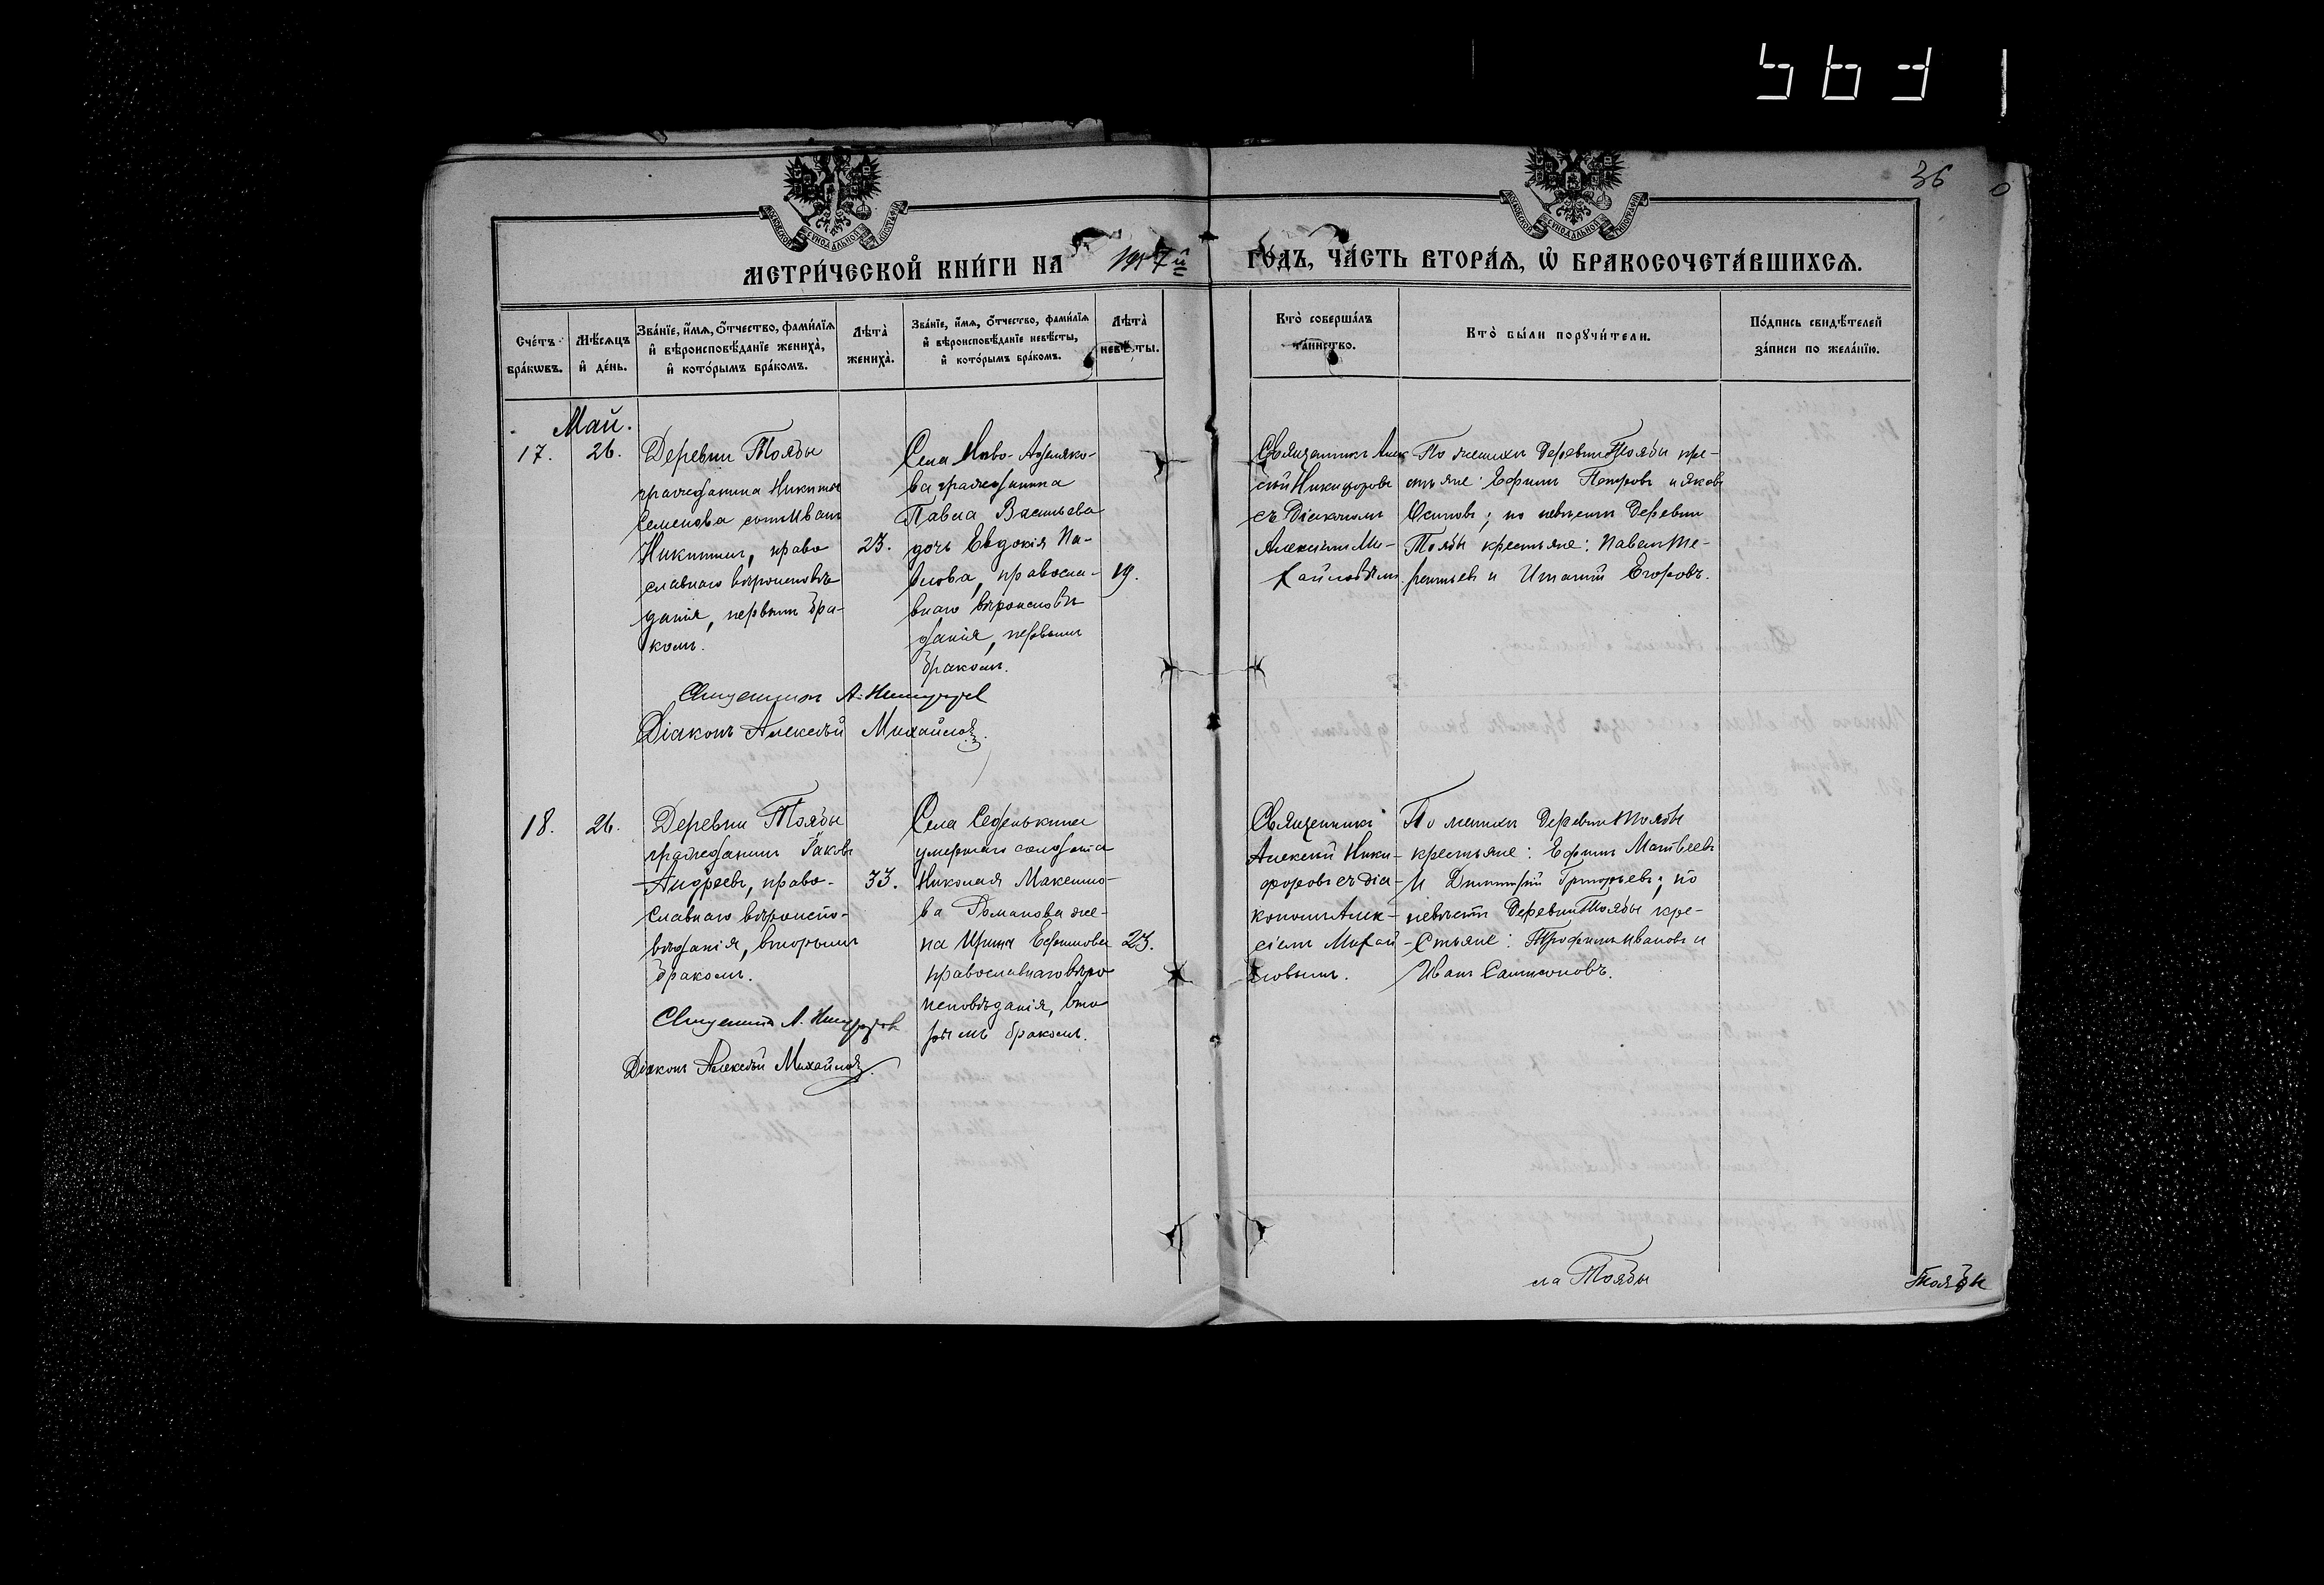 36
МОСКОВСКОЙ СѴНОДАЛЬНОЙ ТИПОГРАФІИ
МОСКОВСКОЙ СѴНОДАЛЬНОЙ ТИПОГРАФІИ
МЕТРИ́ЧЕСКОЙ КНИ́ГИ НА 1917й ГО́ДЪ, ЧА́СТЬ ВТОРА́Ѧ, Ѡ҆ БРАКОСОЧЕТА́ВШИХСѦ.
Сче́тъ бра́кѡвъ.
Мѣ́сѧцъ и҆ де́нь.
Зва́нїе, и҆́мѧ, ѻ҆́тчество, фами́лїѧ
и҆ вѣроисповѣ́данїе жениха̀,
и҆ кото́рымъ бра́комъ.
Лѣта̀ жениха̀.
Зва́нїе, и҆́мѧ, ѻ҆́тчество, фами́лїѧ
и҆ вѣроисповѣ́данїе невѣ́сты,
и҆ кото́рымъ бра́комъ.
Лѣта̀ невѣ́сты.
Кто̀ соверша́лъ
та́инство.
Кто̀ бы́ли порꙋчи́тели.
По́дпись свидѣ́телей
за́писи по жела́нїю.
Май.
17.
26.
Деревни Тоябы
гражданина Никиты
Семенова сынъ Иванъ
Никитинъ, право
славнаго вѣроисповѣ
данія, первымъ бра-
комъ.
23.
Села Ново-Аделяко-
ва гражданина
Павла Васильева
дочь Евдокія Па-
влова, правосла-
внаго вѣроисповѣ
данія, первымъ
бракомъ.
19.
Священникъ Алек
сѣй Никифоровъ
съ Діакономъ
Алексіемъ Ми-
хайловымъ.
По женихѣ деревни Тоябы кре-
стьяне: Ефимъ Петровъ и Яковъ
Осиповъ; по невѣстѣ деревни
Тоябы крестьяне: Павелъ Те-
рентьевъ и Игнатій Егоровъ.
Священникъ А. Никифоровъ
Діаконъ Алексѣй Михайловъ.
18.
26.
Деревни Тоябы
гражданинъ Яковъ
Андреевъ, право-
славнаго вѣроиспо-
вѣданія, вторымъ
бракомъ.
33.
Села Седенькина
умершаго солдата
Николая Максимо-
ва Романова же-
на Ирина Ефимова
православнаго вѣро
исповѣданія, вто
рымъ бракомъ.
23.
Священникъ
Алексѣй Ники-
форовъ съ діа-
кономъ Алек-
сіемъ Михай
ловымъ.
По женихѣ деревни Тоябы
крестьяне: Ефимъ Матвеевъ
и Димитрій Григорьевъ; по
невѣстѣ деревни Тоябы кре-
стьяне: Трофимъ Ивановъ и
Иванъ Сампсоновъ.
Священникъ А. Никифоровъ
Діаконъ Алексѣй Михайловъ.
ла Тоябы
Тоябы